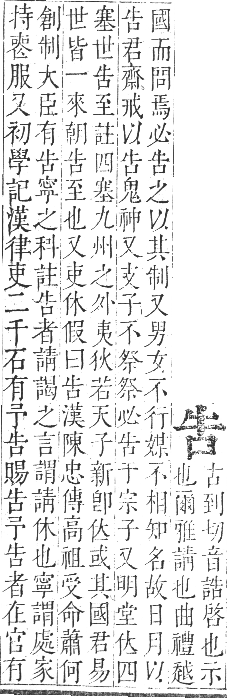 告
古到切音誥啓也示
也爾雅請也曲禮越
國而問焉必告之以其制又男女不行媒不相知名故日月以
告君齋戒以告鬼神又支子不祭祭必告于宗子又明堂位四
塞世告至註四塞九州之外夷狄若天子新卽位或其國君易
世皆一來朝告至也又吏休假曰告漢陳忠傳高祖受命蕭何
創制大臣有告寧之科註告者請謁之言謂請休也寧謂處家
持喪服又初學記漢律吏二千石有予告賜告予告者在官有